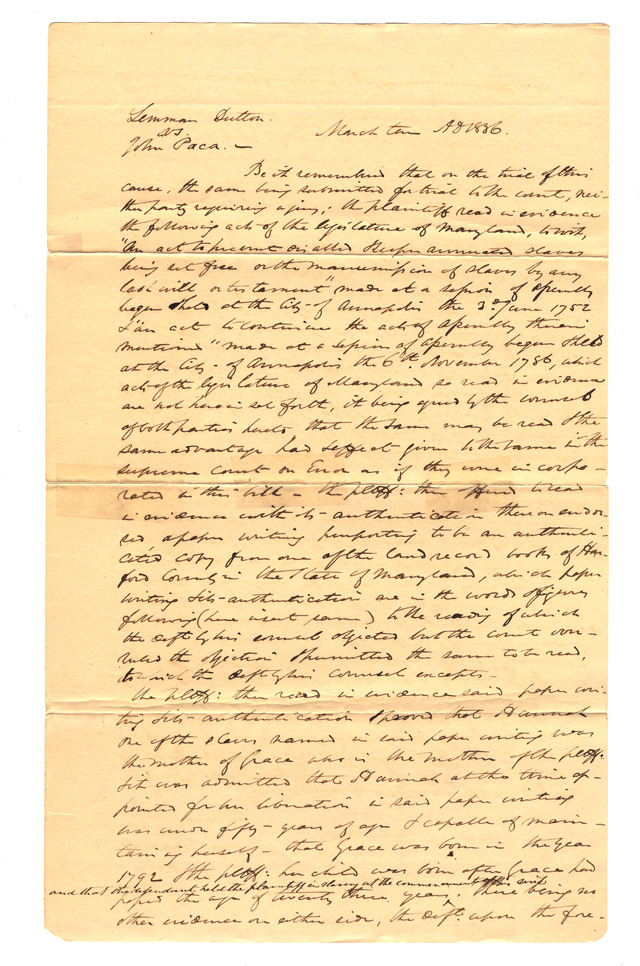 Lemmon Dutton.
vs.
John Paca. —
March term AD 1836.
Be it remembered that on the trial of this
cause, the same being submitted for trial to the court, nei-
ther party requiring a jury; the plaintiff read in evidence
the following acts of the legislature of Maryland, to wit,
"An act to prevent disabled & superannuated slaves
being set free or the manumission of slaves by any
last will or testament" made at a session of assembly
began & held at the City of Annapolis the 3d June 1752
& "an act to continue the acts of assembly therein
mentioned" made at a session of assembly begun & held
at the City of Annapolis the 6th November 1786, which
acts of the legislature of Maryland so read in evidence
are not herein set forth, it being agreed by the counsel
of both parties hereto that the same may be read & the
same advantage had & effect given to the same in the
supreme court on Error as if they were incorpo-
rated in this bill — the pltff: then offered to read
in evidence with its authentication thereon endor-
sed a paper writing purporting to be an authenti-
cated copy from one of the land record books of Har-
ford County in the State of Maryland, which paper
writing & its authentication are in the words & figures
following (here insert same) to the reading of which
the deft by his counsel objected but the court over-
ruled the objection & permitted the same to be read,
to which the deft by his counsel excepts —
the pltff: then read in evidence said paper wri-
ting & its authentication & proved that Hannah
one of the slaves named in said paper writing was
the mother of Grace who is the mother of the pltff:
& it was admitted that Hannah at the time ap-
pointed for her liberation in said paper writing
was under fifty years of age & capable of main-
taining herself — that Grace was born in the year
1792 & the pltff: her child was born after Grace had
and that the defendant held the plaintiff in slavery at the commencement of this suit
passed the age of twenty three years. There being no
other evidence on either side, the deft. upon the fore-